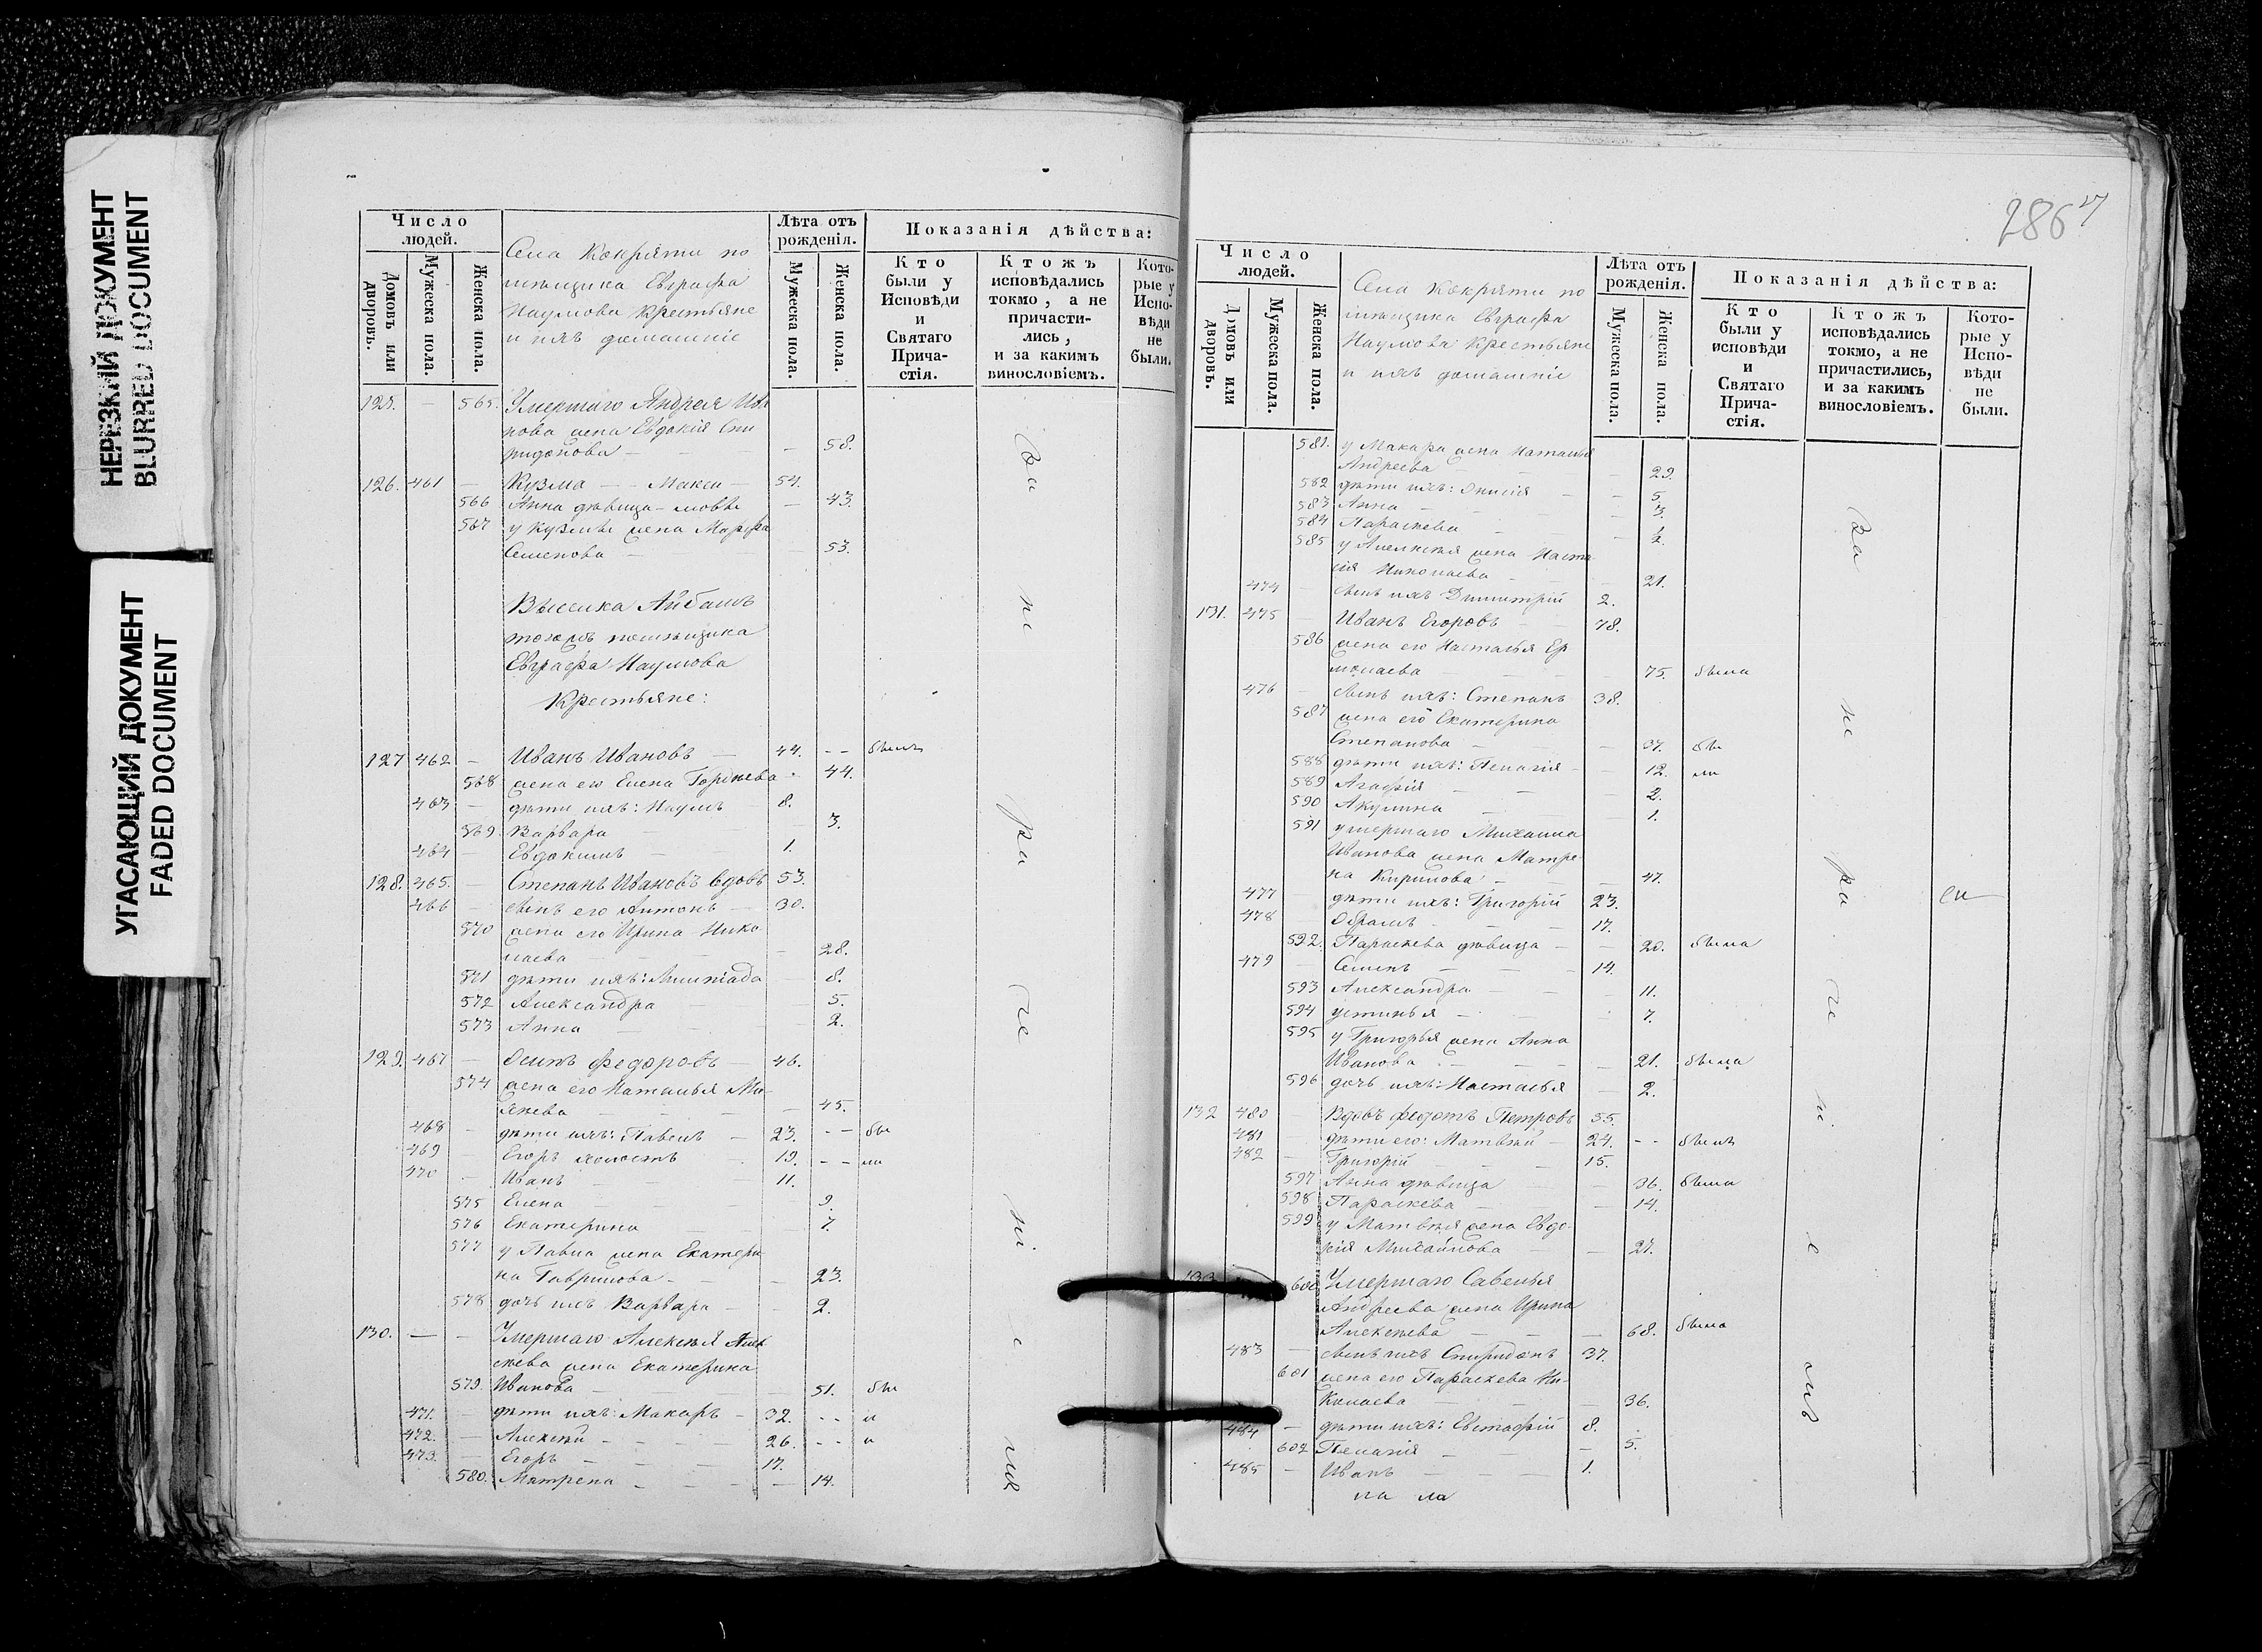 НЕРЕЗКИЙ ДОКУМЕНТ
BLURRED DOCUMENT
УГАСАЮЩИЙ ДОКУМЕНТ
FADED DOCUMENT
Число людей.
Домовъ или дворовъ.
Мужеска пола.
Женска пола.
Села Кокряти по
мѣщика Евграфа
Наумова Крестьяне
и ихъ домашніе
Лѣта отъ рожденія.
Мужеска пола.
Женска пола.
Показанія дѣйства:
Кто были у Исповѣди и Святаго Причастія.
Ктожъ исповѣдались токмо, а не причастились, и за какимъ винословіемъ.
Которые у Исповѣди не были.
125. — 565. Умершаго Андрея Ива
нова жена Евдокія Спи
ридонова — — 58.
126. 461 — Кузма — — Макси — 54.
566 Анна дѣвица — мовы — 43.
567 у Кузмы жена Марфа
Семенова — 53.
Выселка Айбашъ
тогожъ помѣщика
Евграфа Наумова
Крестьяне:
127 462 — Иванъ Ивановъ — 44. -- былъ
568 жена его Елена Гордѣева - 44.
463 — дѣти ихъ: Наумъ 8.
569 Варвара — 3.
464 — Евдокимъ — 1.
128. 465. — Степанъ Ивановъ вдовъ 53.
466 — сынъ его Антонъ — 30.
570 жена его Ирина Нико
лаева — — 28.
571 дѣти ихъ: — 8.
572 Александра — 5.
573 Анна — — 2.
129. 467 — Осипъ Федоровъ — 46.
574 жена его Наталья Ми-
хѣева — — — 45.
468 — дѣти ихъ: Павелъ — 23. -- бы
469 Егоръ холостъ 19. -- ли
470 - Иванъ — 11.
575 Елена — — 9.
576 Екатерина — — 7.
577 у Павла жена Екатери
на Гаврилова — — — 23.
578 дочь ихъ Варвара — — 2.
130. — — Умершаго Алексѣя Алек
сѣева жена Екатерина
579. Иванова — — 51. бы
471. — дѣти ихъ: Макаръ — 32. --
472. — Алексѣй — — — 26. --
473. — Егоръ — — — 17.
580. Матрена — — — — 14.
за не ра че ні е мъ
286
Число людей.
Домовъ или дворовъ.
Мужеска пола.
Женска пола.
Села Кокряти по
мѣщика Евграфа
Наумова Крестьяне
и ихъ домашніе
Лѣта отъ рожденія.
Мужеска пола.
Женска пола.
Показанія дѣйства:
Кто были у исповѣди и Святаго Причастія.
Ктожъ исповѣдались токмо, а не причастились, и за какимъ винословіемъ.
Которые у Исповѣди не были.
581. у Макара жена Наталья
Андреева — — — 29.
582 дѣти ихъ: — — 5.
583 Анна — — — 3.
584 Параскева — — 2.
585 у Алексѣя жена Наста
сія Николаева — — — 21.
474 — сынъ ихъ Димитрій 2.
131. 475 Иванъ Егоровъ — — 78.
586 жена его Настасья Ер
молаева — — 75. была
476 — сынъ ихъ: Степанъ 38.
587 жена его Екатерина
Степанова — — 37. бы
588 дѣти ихъ: Пелагія — — 12. ли
589 Агафія — — — 2.
590 Акулина — — 1.
591 умершаго Михаила
Иванова жена Матре
на Кирилова — — 47.
477 — дѣти ихъ: Григорій 23.
478 — Абрамъ — — 17.
592. Параскева дѣвица — — 20. была
479 — Семенъ — — 14.
593 Александра — — — 11.
594 устинья — — — 7.
595 у Григорья жена Анна
Иванова — — — 21. была
596 дочь ихъ: Настасья — 2.
132 480 — Вдовъ Федотъ Петровъ 55.
481 — дѣти его: Матвѣй — 24. -- былъ
482 — Григорій 15.
597 Анна дѣвица — — 36. была
598 Параскева — — 14.
599 у Матвѣя жена Евдо-
кія Михайлова — — 27.
133 600 Умершаго Савелья
Андреева жена Ирина
Алексѣева — — — 68. была
483 — сынъ ихъ Спиридонъ 37.
601 жена его Параскева Ни-
колаева — — 36.
484 — дѣти ихъ: Евстафій 8.
602 Пелагія — — 5.
485 — Иванъ — — — 1.
за не ра че ні е мъ